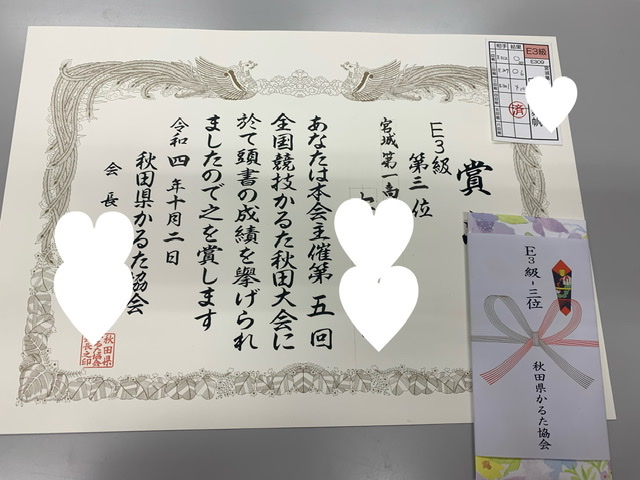 賞
E3級
第三位
宮城第一高
あなたは本会主催第五回
全国競技かるた秋田大会に
於て頭書の成績を挙げられ
ましたので之を賞します
令和四年十月二日
秋田県かるた協会
会長
E3級
E309
相手
結果
済
E3級-三位
秋田県かるた協会